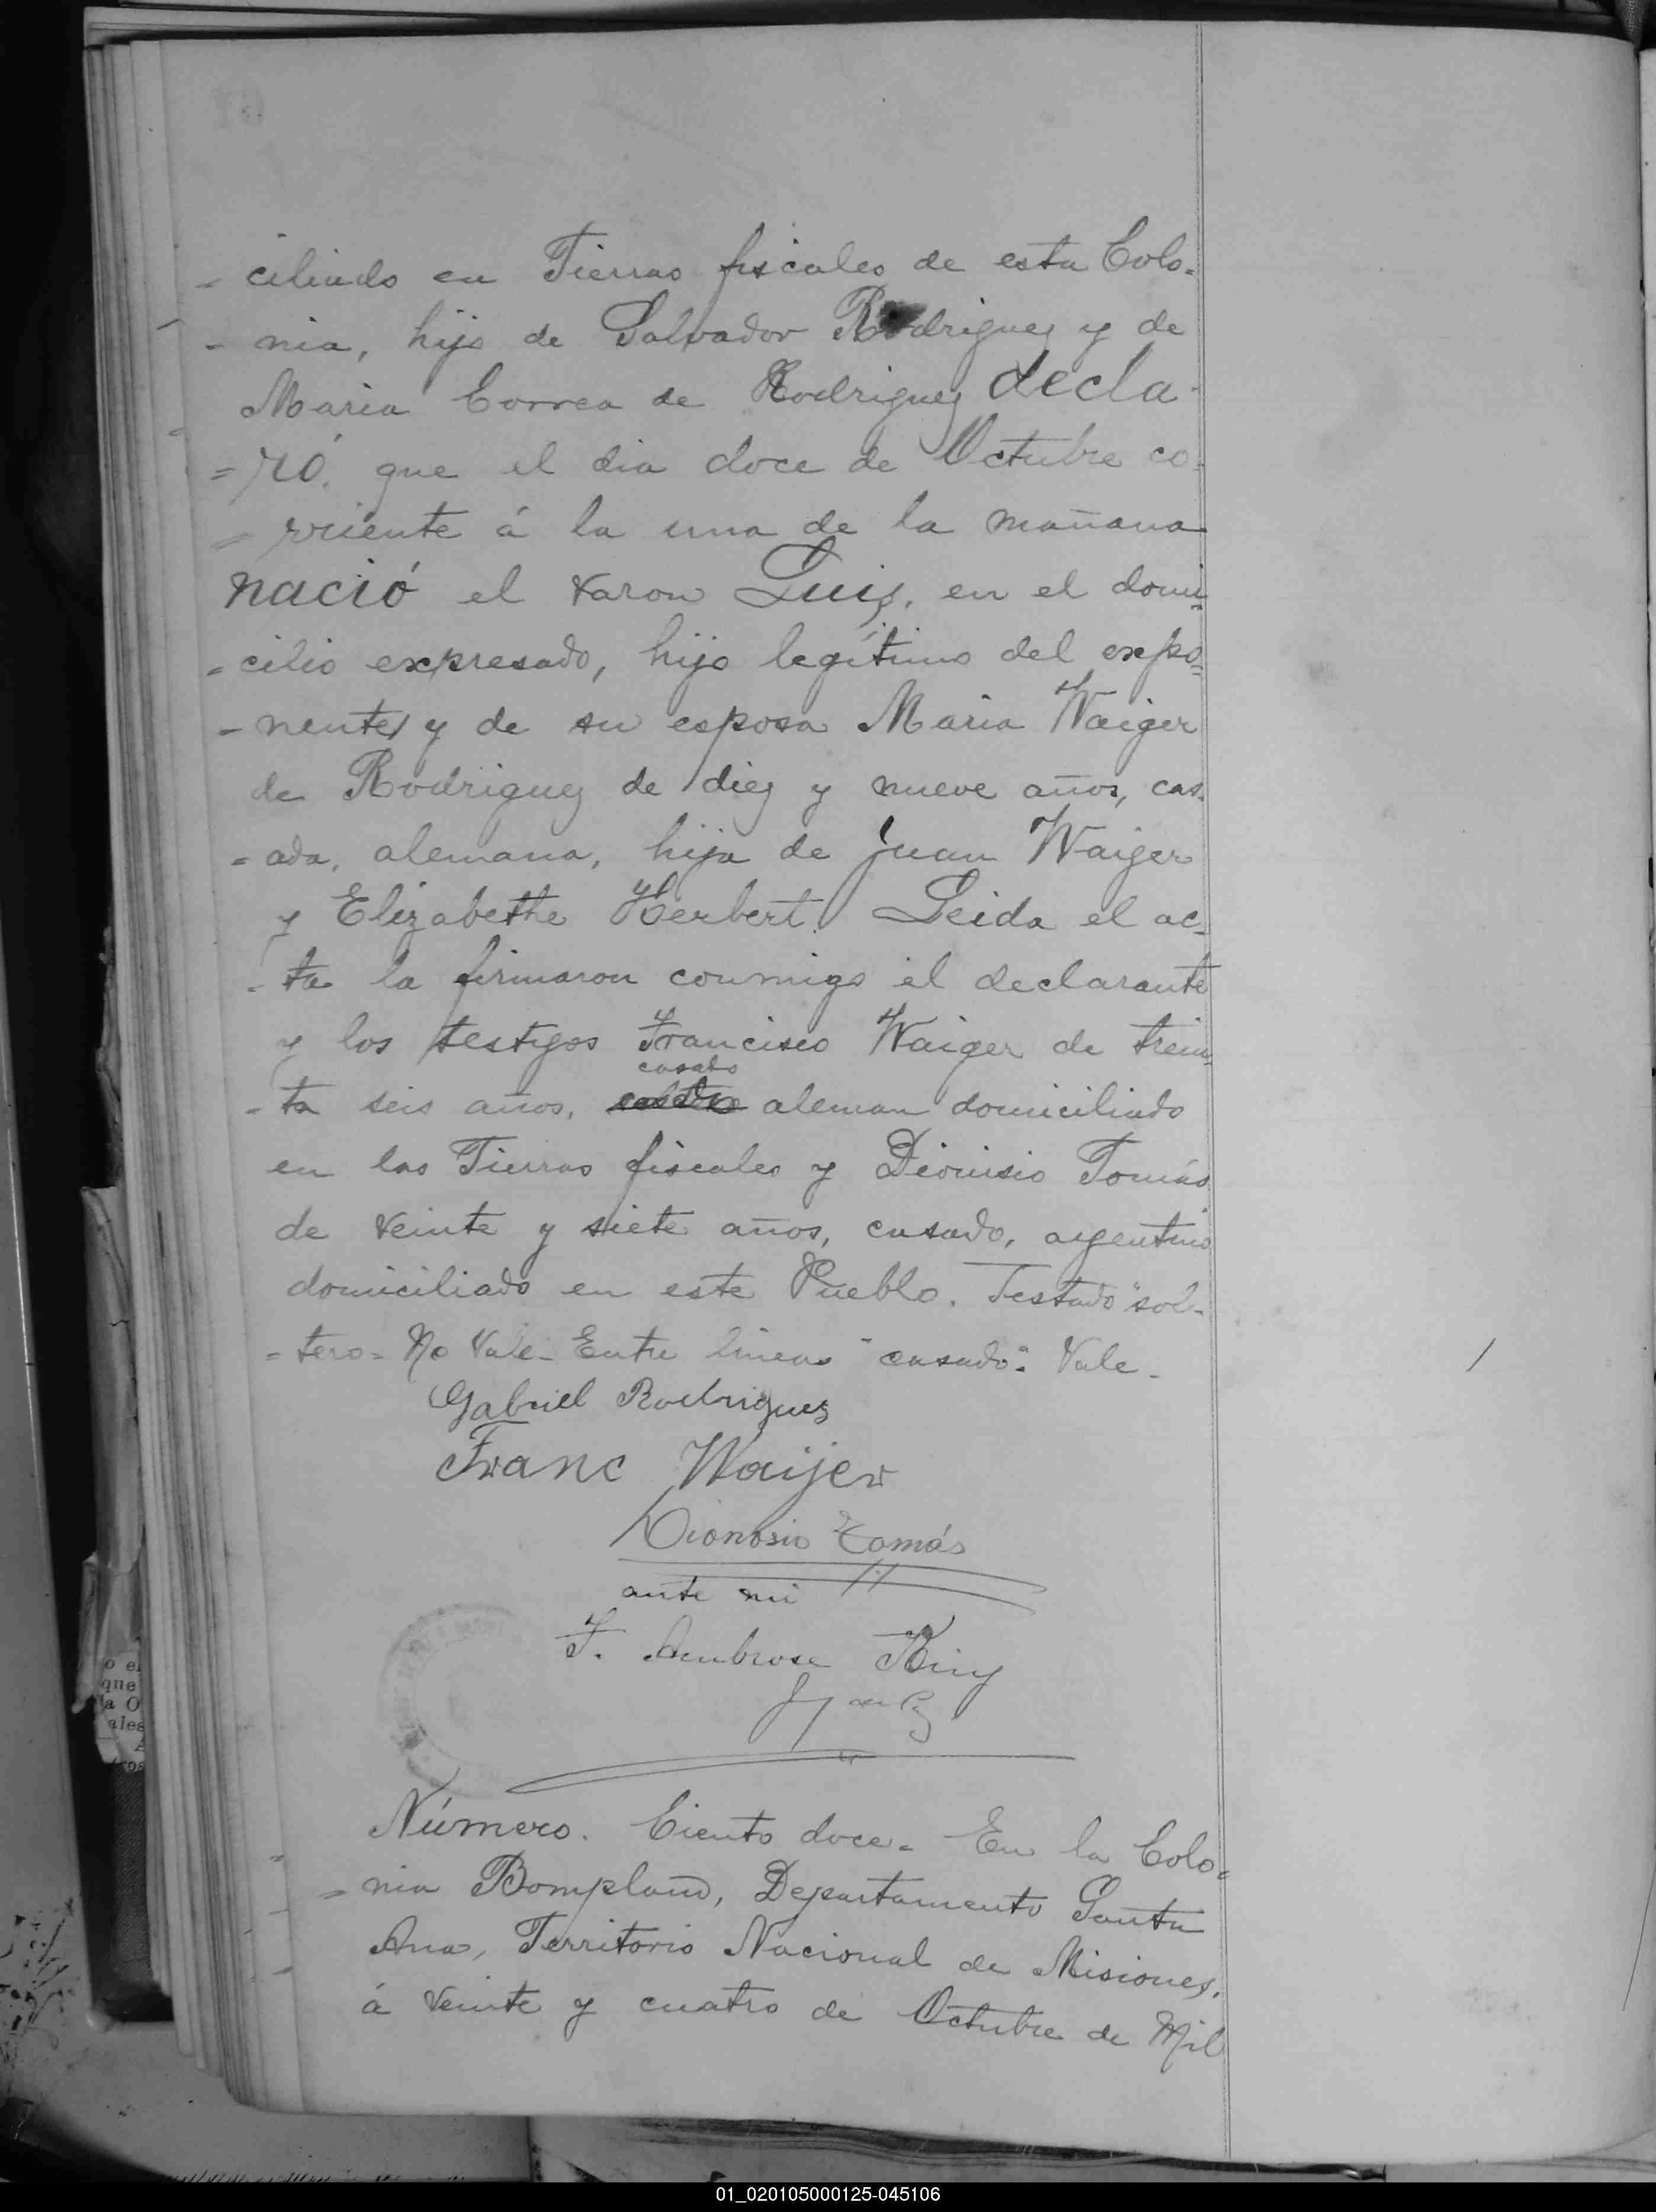 - ciliado en Tierras fiscales de esta Colo-
- nia, hijo de Salvador Rodriguez y de
Maria Correa de Rodriguez decla-
= ró. que el dia doce de Octubre co-
= rriente á la una de la mañana
nació el varon Luis, en el domi-
- cilio expresado, hijo legítimo del expo-
- nente y de su esposa Maria Waiger
de Rodriguez de diez y nueve años, cas-
= ada, alemana, hija de Juan Waiger
y Elizabethe Herbert. Leida el ac-
- ta la firmaron conmigo el declarante
y los testigos Francisco Waiger de trein-
casado
- ta seis años, soltero aleman domiciliado
en las Tierras fiscales y Dionisio Tomás
de veinte y siete años, casado, argentino
domiciliado en este Pueblo. Testado "sol-
= tero = No Vale - Entre lineas "casado": Vale -
Gabriel Rodriguez
Franc Waijer
Dionosio Tomás
ante mi
F. Ambrose King
J de Pz
Número. Ciento doce = En la Colo-
= nia Bompland, Departamento Santa
Ana, Territorio Nacional de Misiones,
á veinte y cuatro de Octubre de Mil
o el
que
la O
ales
01_020105000125-045106